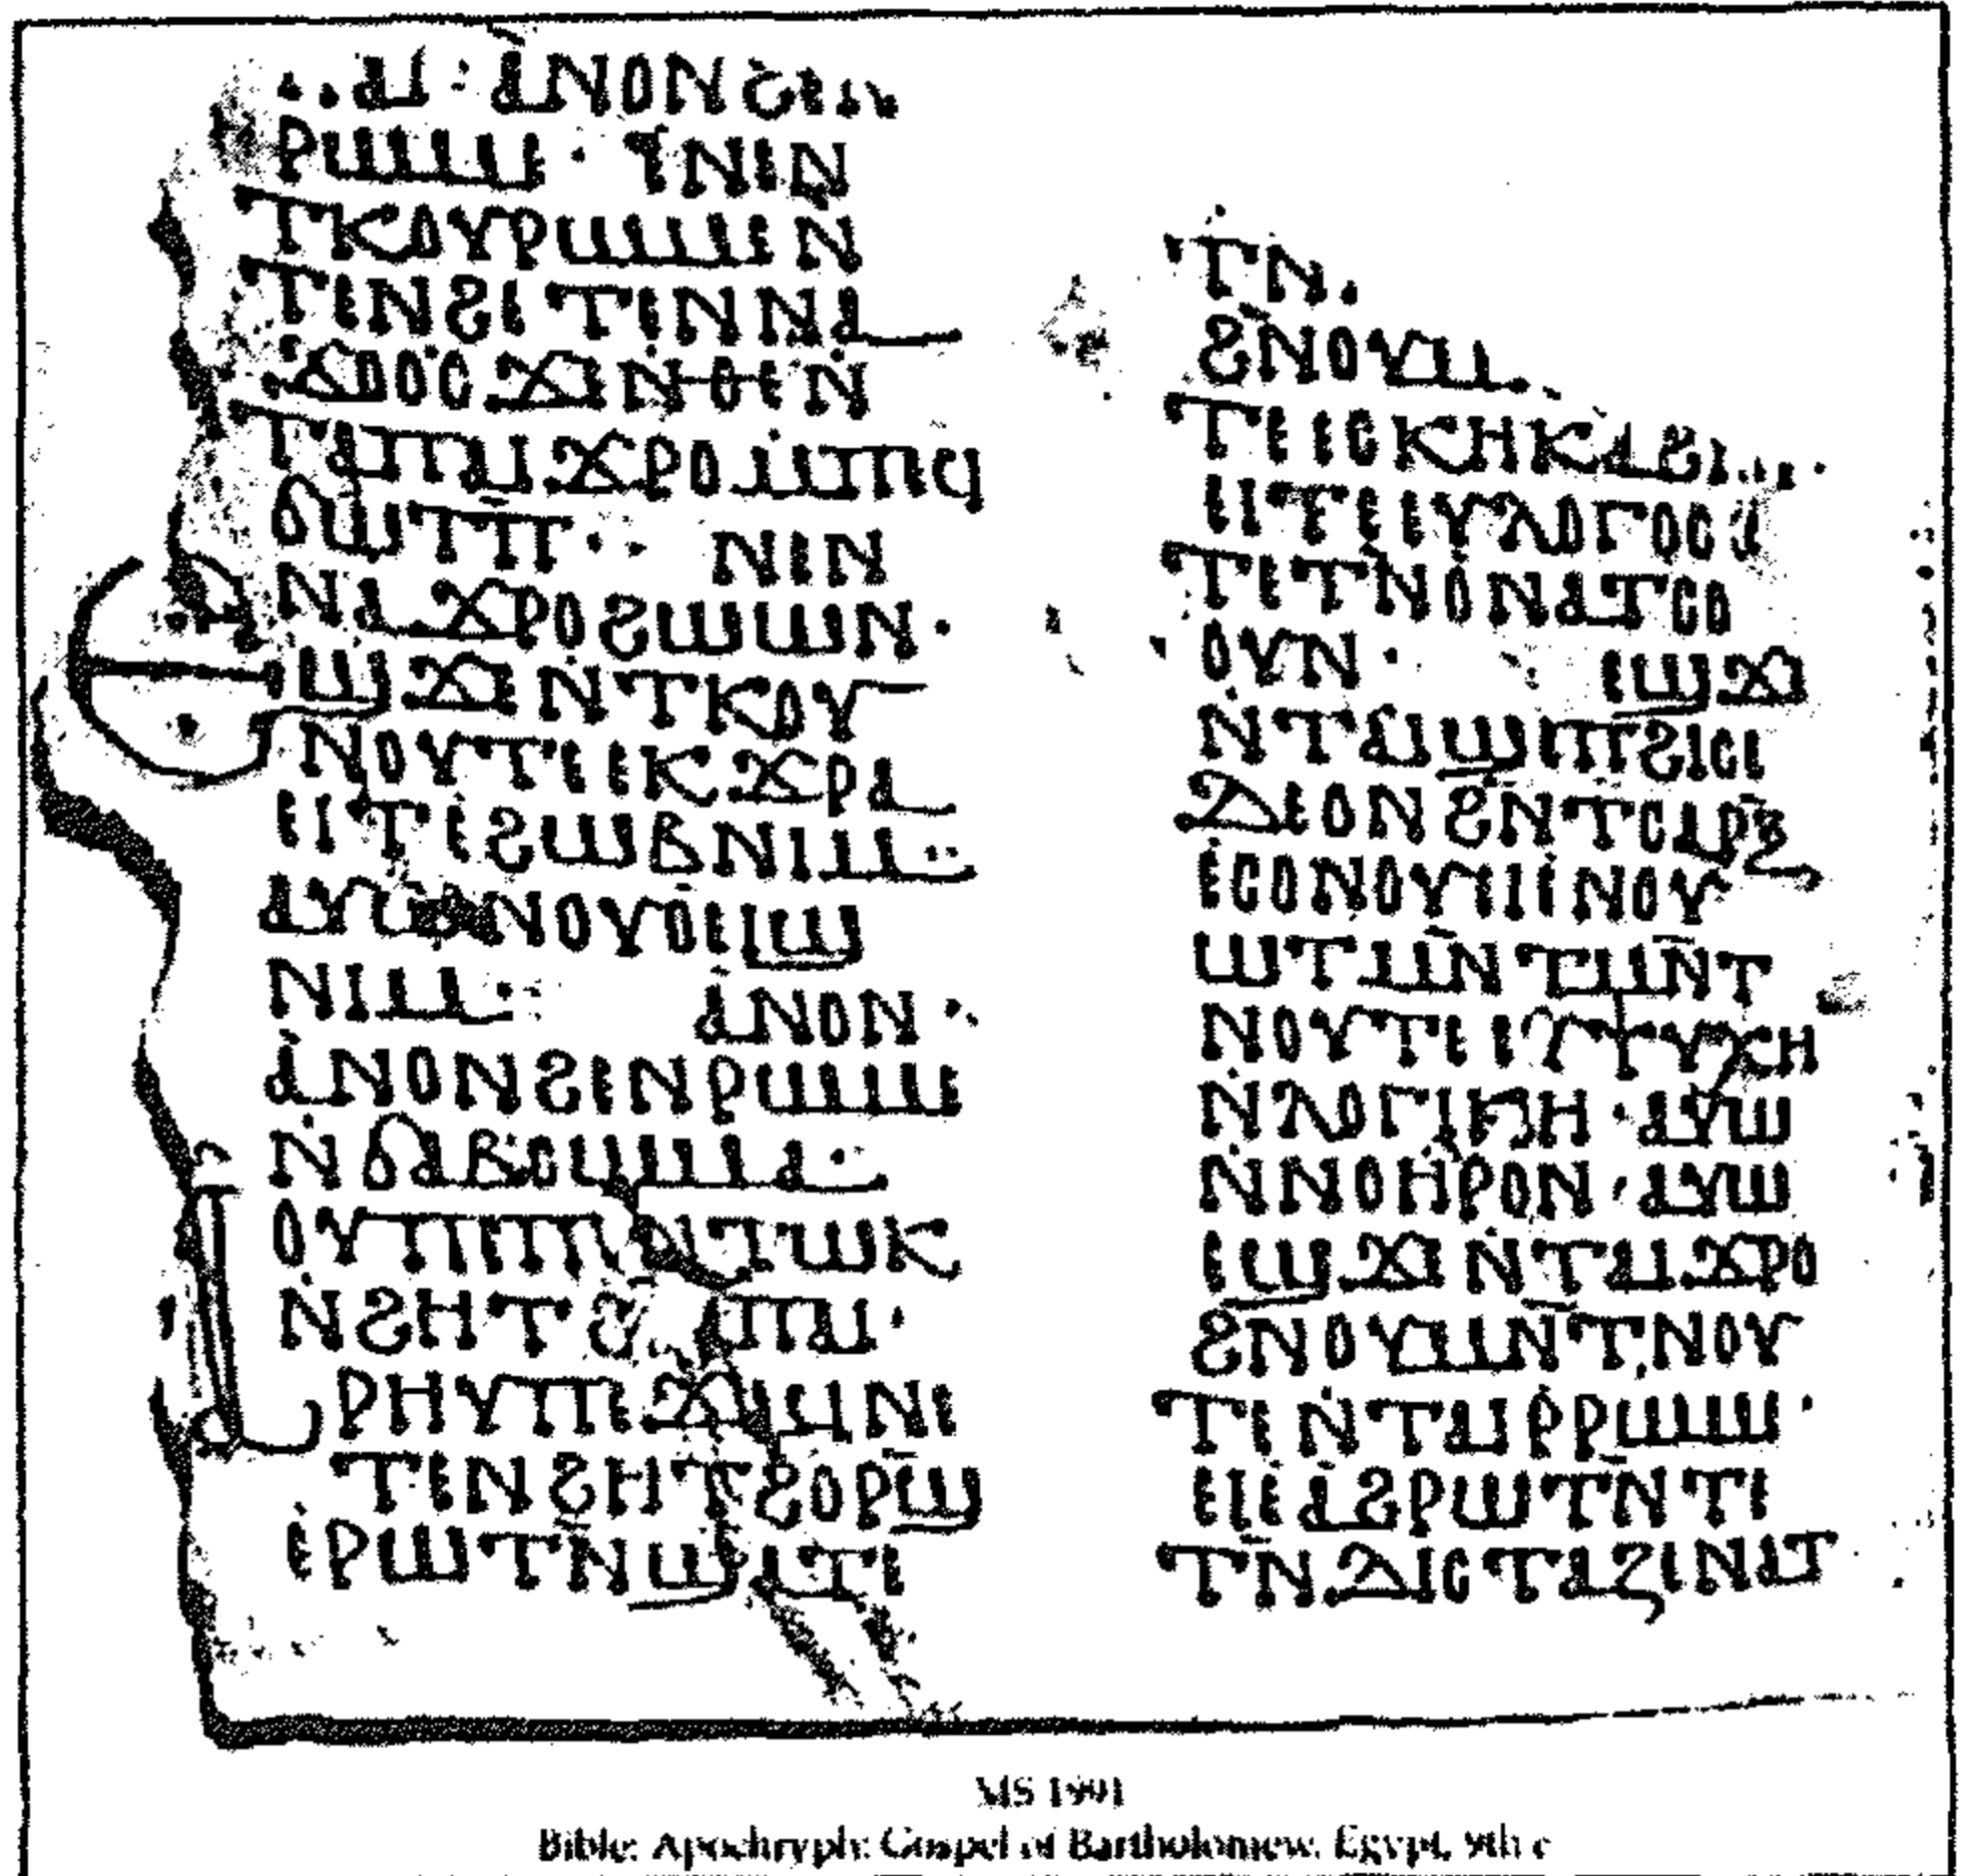 ⲁⲛⲟⲛ ϩⲉⲛ
ⲣⲱⲙⲉ ·
ⲧⲕⲟⲩⲣⲱⲙⲉ ⲛ̇
ⲧⲉⲛϩⲉ ⲧⲉⲛⲛⲁ
ϫⲟⲟⲥ ϫⲉ ⲛ̇ⲑⲉ ⲛ̇
ⲧⲁⲡⲁϫⲣⲟ ⲙⲡⲉϥ
ϭⲱⲧⲡ̅ · ⲛⲉⲛ
ⲛⲁϫⲣⲟ ϩⲱⲱⲛ ·
ⲉϣϫⲉ ⲛ̇ⲧⲕⲟⲩ
ⲛⲟⲩⲧⲉ ⲉⲕϫⲣⲁ
ⲉⲓⲧ ⲉ̇ϩⲱⲃ ⲛⲓⲙ
ⲁⲩⲱ ⲛⲟⲩⲟⲉⲓϣ
ⲛⲓⲙ · ⲁ̇ⲛⲟⲛ ·
ⲁ̇ⲛⲟⲛ ϩⲉⲛⲣⲱⲙⲉ
ⲛ̇ϭⲁⲃⲥⲱⲙⲁ ·
ⲛ̇ϩⲏⲧ ⲡⲁⲓ ·
ⲣⲏⲩ ⲡⲉϫⲁⲓ ⲛⲉ
ⲧⲉⲛϩⲏⲧ ϩⲟⲣϣ̅
ⲉ̇ⲣⲱⲧⲛ̅ ϣⲁⲧⲉ
ⲧⲛ
ϩⲛ̅ⲟⲩⲙ
ⲧⲉⲓⲥⲕⲏⲕⲁϩ
ⲉⲓⲧⲉ ⲉⲩⲗⲟⲅⲟⲥ
ⲧⲉⲧⲛ̅ⲟ ⲛⲁⲧⲥⲟ
ⲟⲩⲛ · ⲉϣϫ
ⲛ̇ⲧⲁϣⲉⲡϩⲓⲥⲉ
ⲇⲉ ⲟⲛ ϩⲛ̅ ⲧⲥⲁⲣⲝ̅
ⲉ̇ⲥⲟ ⲛⲟⲩⲉⲓⲉ̇ⲛⲟⲩ
ⲱⲧ ⲙⲛ̅ ⲧⲙⲛ̅ⲧ
ⲛⲟⲩⲧⲉ ⲉⲧⲯⲩⲭⲏ
ⲛ̇ⲗⲟⲅⲓⲕⲏ · ⲁⲩⲱ
ⲛ̇ⲛⲟⲏ̇ⲣⲟⲛ · ⲁⲩⲱ
ⲉϣϫⲉ ⲛ̇ⲧⲁⲓϫⲣⲟ
ϩⲛ ⲟⲩⲙⲛ̅ⲧⲛⲟⲩ
ⲧⲉ ⲛ̇ⲧⲁⲓⲣ̇ⲣⲱⲙⲉ ·
ⲉⲓⲉ ⲁ̇ϩⲣⲱⲧⲛ̅ ⲧⲉ
ⲧⲛ̅ⲇⲓⲥⲧⲁⲍⲉ ⲛⲁⲧ
MS 1991
Bible: Apochryph: Gospel of Bartholomew. Egypt, 9th c